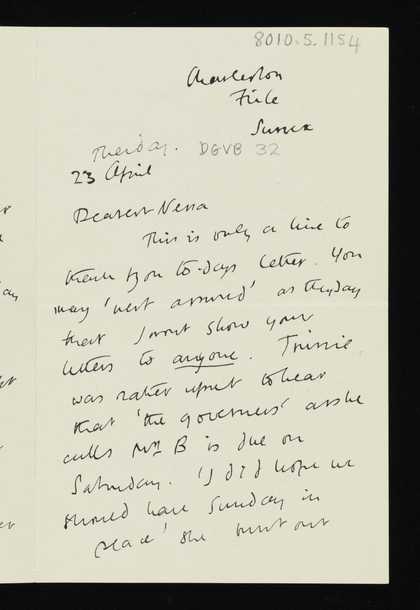 8010.5.1154
Charleston
Firle
Sussex
Thursday. DGVB 32
23 April
Dearest Nessa
This is only a line to
thank you to-days letter. You
may 'rest assured' as they say
that I wont show your
letters to anyone. Trissie
was rather upset to hear
that 'the governess' as she
calls Mrs B is due on
Saturday. 'I did hope we
should have Sunday in
peace' she burst out